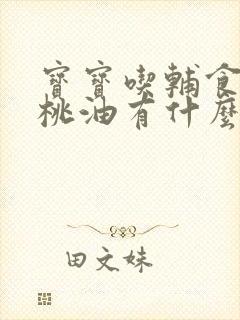 寶寶喫輔食
桃油有什麼
田文妹